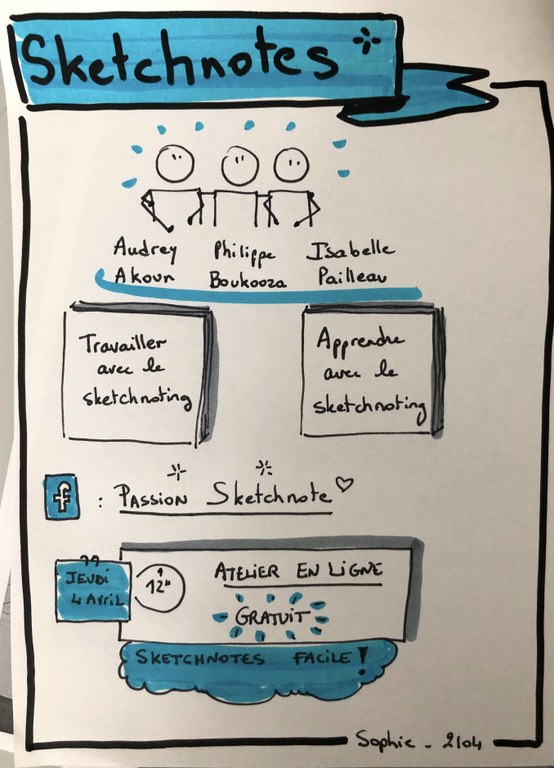 Sketchnotes
Audrey Philippe Isabelle
Akoun Boukobza Pailleau
Travailler
avec le
sketchnoting
Apprendre
avec le
sketchnoting
f : PASSION Sketchnote
JEUDI
4 AVRIL
12h
ATELIER EN LIGNE
GRATUIT
SKETCHNOTES FACILE!
Sophie - 2/04